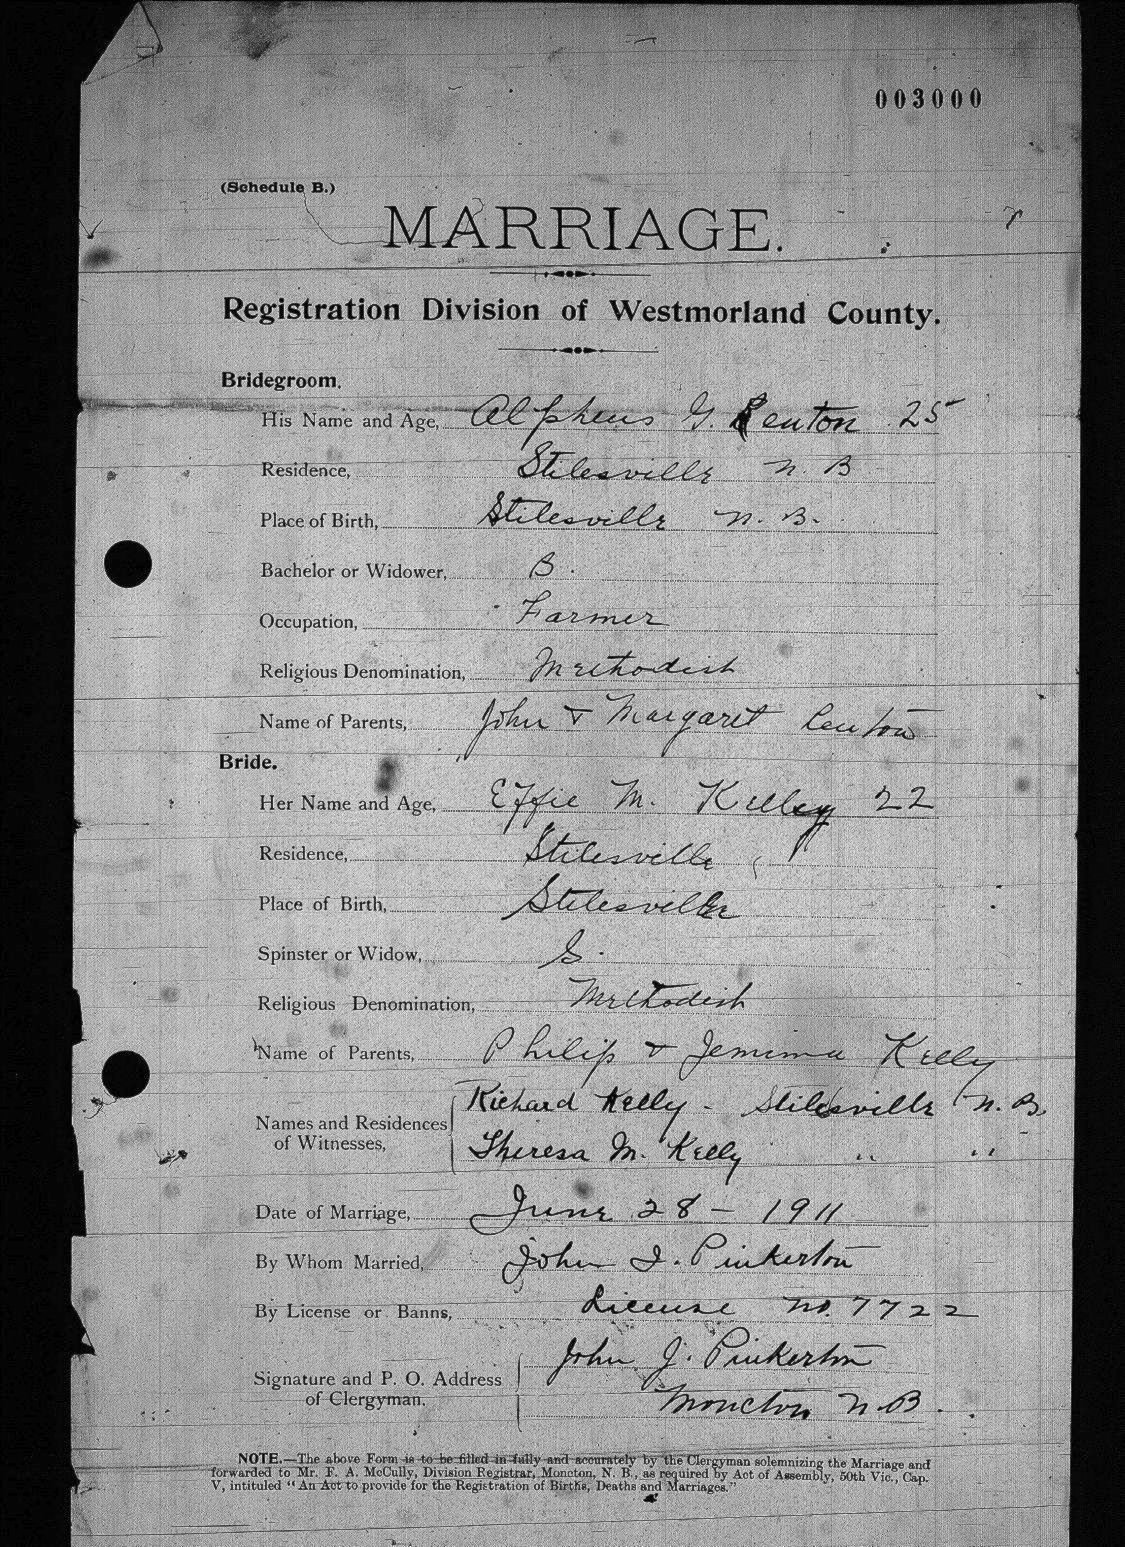 003000
(Schedule B.)
MARRIAGE.
Registration Division of Westmorland County.
Bridegroom.
His Name and Age, Alpheus G. Lenton 25
Residence, Stilesville N. B
Place of Birth, Stilesville N. B.
Bachelor or Widower, B.
Occupation, Farmer
Religious Denomination, Methodist
Name of Parents, John & Margaret Lenton
Bride.
Her Name and Age, Effie M. Kelley 22
Residence, Stilesville
Place of Birth, Stilesville
Spinster or Widow, S.
Religious Denomination, Methodist
Name of Parents, Philip & Jemima Kelly
Names and Residences of Witnesses, Richard Kelly - Stilesville N. B.
Theresa M. Kelly " "
Date of Marriage, June 28 - 1911
By Whom Married, John J. Pinkerton
By License or Banns, License No. 7722
Signature and P. O. Address of Clergyman. John J. Pinkerton
Moncton N.B.
NOTE.—The above Form is to be filled in fully and accurately by the Clergyman solemnizing the Marriage and
forwarded to Mr. F. A. McCully, Division Registrar, Moncton, N. B., as required by Act of Assembly, 50th Vic., Cap.
V, intituled "An Act to provide for the Registration of Births, Deaths and Marriages."